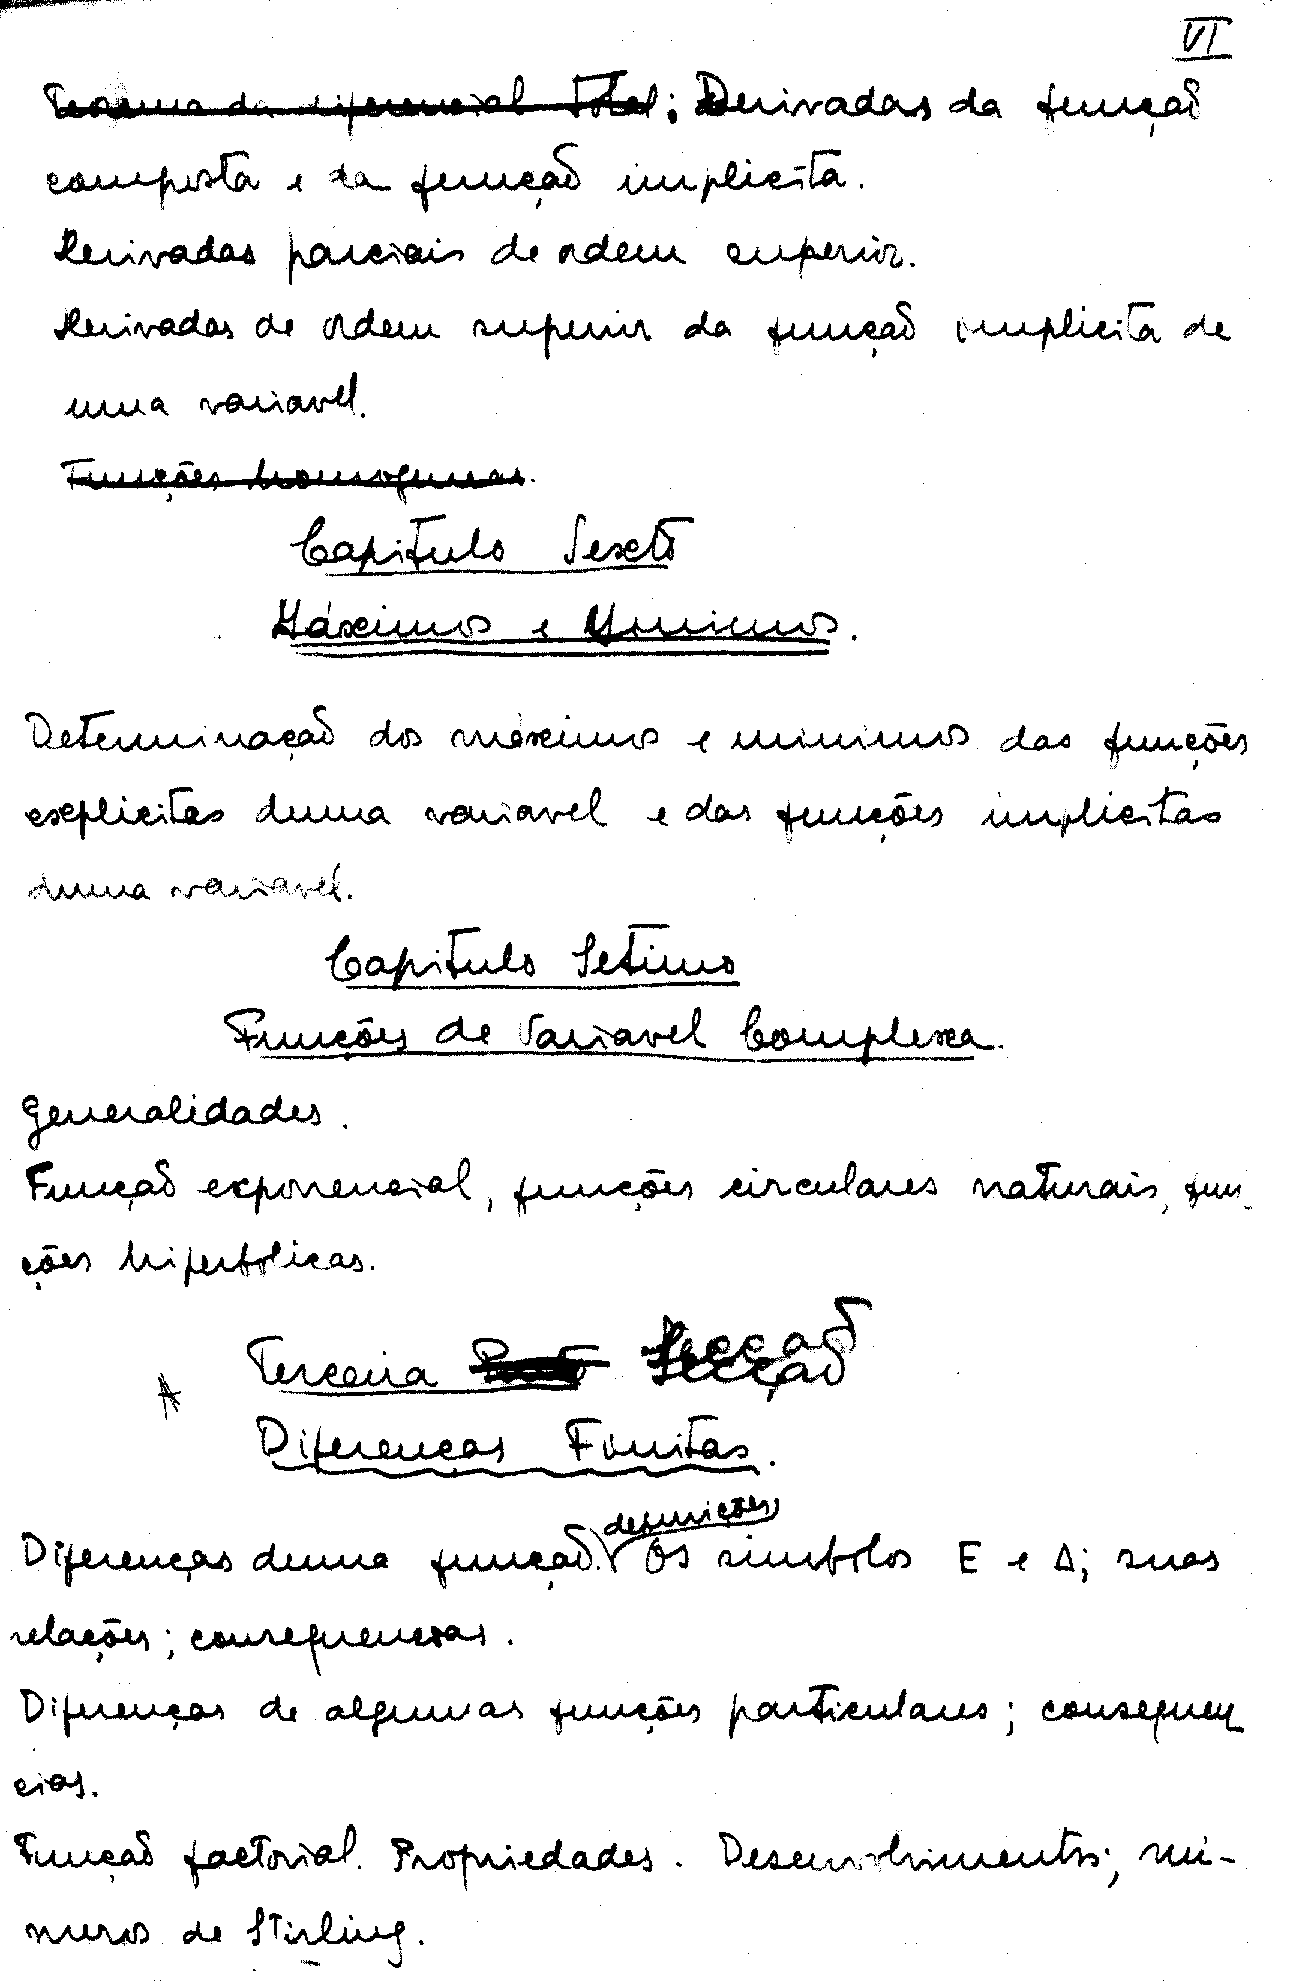 VI
Teorema da diferencial total; Derivadas da função
composta e da função implicita.
Derivadas parciais de ordem superior.
Derivadas de ordem superior da função implicita de
uma variavel.
Funções homogeneas.
Capitulo Sexto
Máximos e Minimos.
Determinação dos máximos e minimos das funções
explicitas duma variavel e das funções implicitas
duma variavel.
Capitulo Setimo
Funções de Variavel Complexa.
Generalidades.
Função exponencial, funções circulares naturais, fun-
ções hiperbólicas.
Terceira Parte Secção
Diferenças Finitas.
definições
Diferenças duma função. Os simbolos E e Δ; suas
relações; consequencias.
Diferenças de algumas funções particulares; consequen
cias.
Função factorial. Propriedades. Desenvolvimentos; nú-
meros de Stirling.